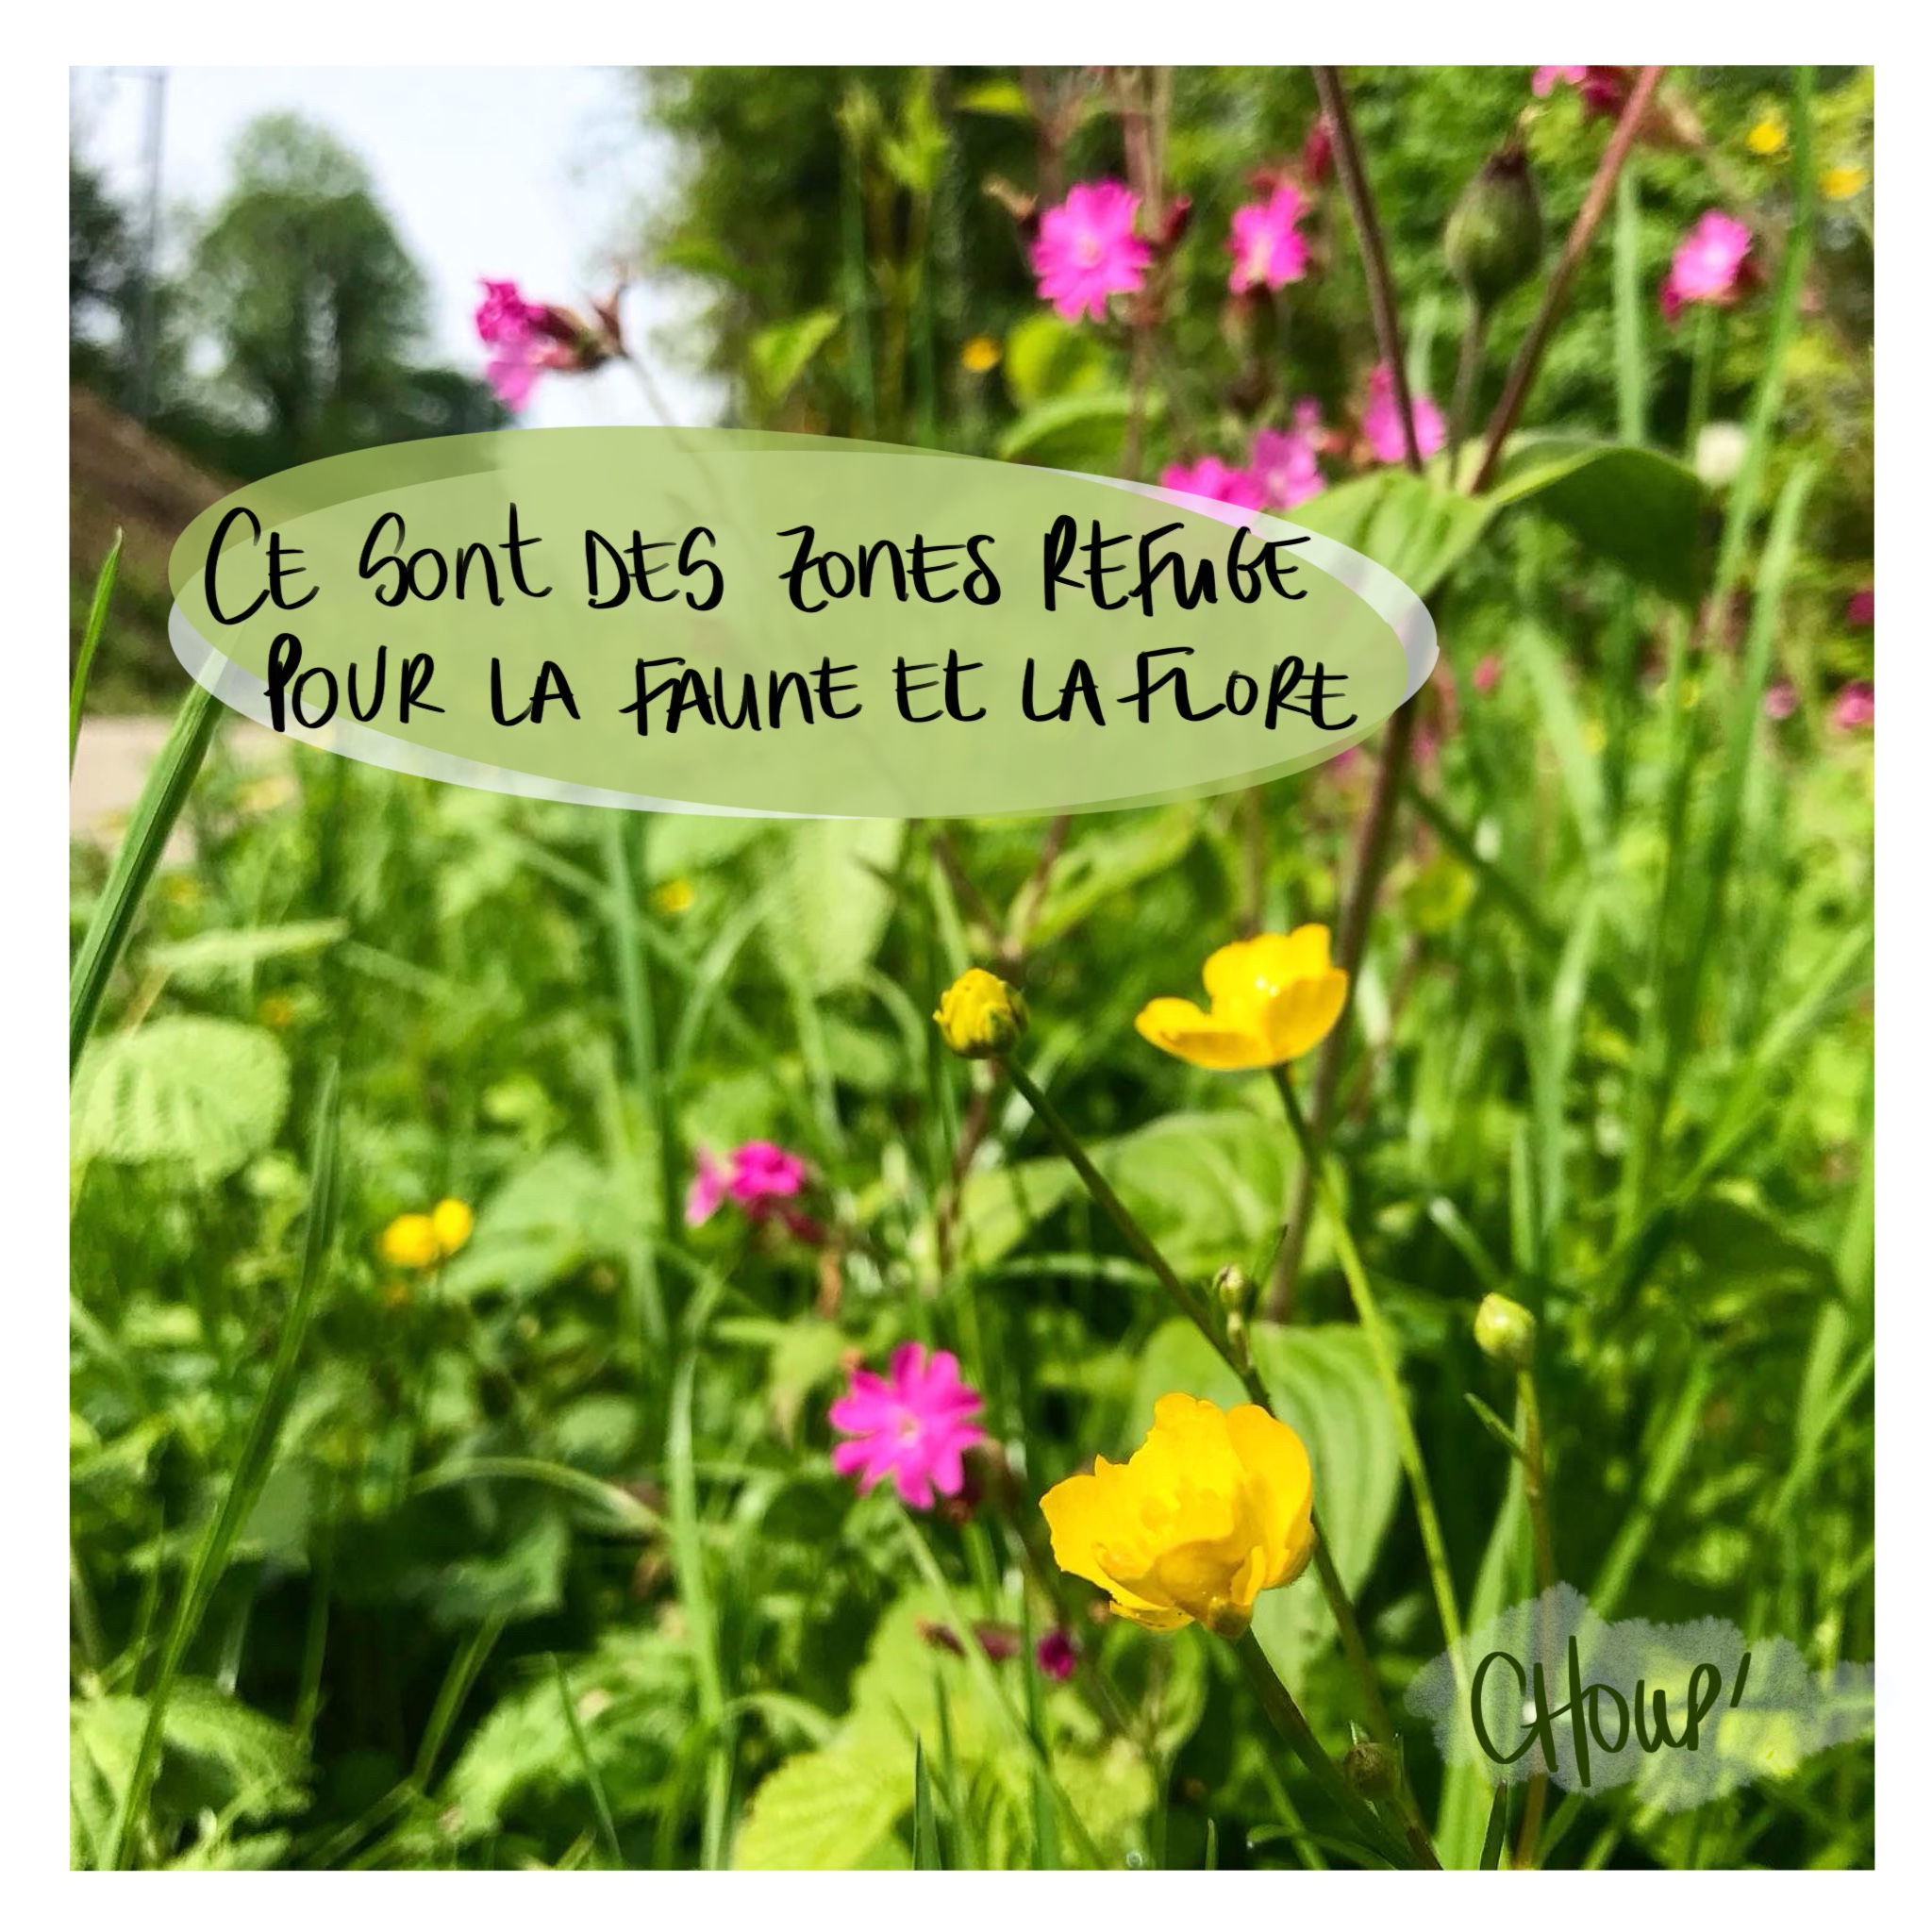 CE Sont DES ZonES REFuGE
POUR LA FAUnE Et LA FLORE
CHOUP'